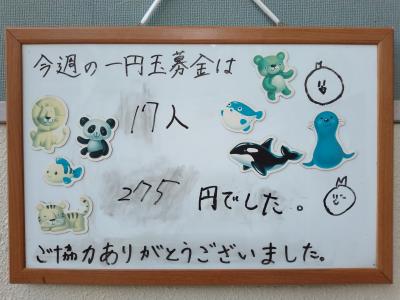 今週の一円玉募金は
17人
275円でした。
ご協力ありがとうございました。